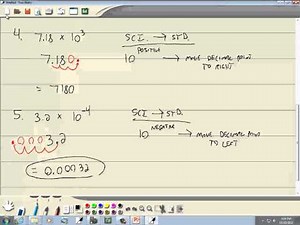 4. 7.18 × 10³ SCI. → STD.
POSITIVE
7.180. 10 → MOVE DECIMAL POINT
TO RIGHT
= 7180
5. 3.2 × 10⁻⁴ SCI. → STD.
NEGATIVE
.0003.2 10 → MOVE DECIMAL POINT
TO LEFT
= 0.00032